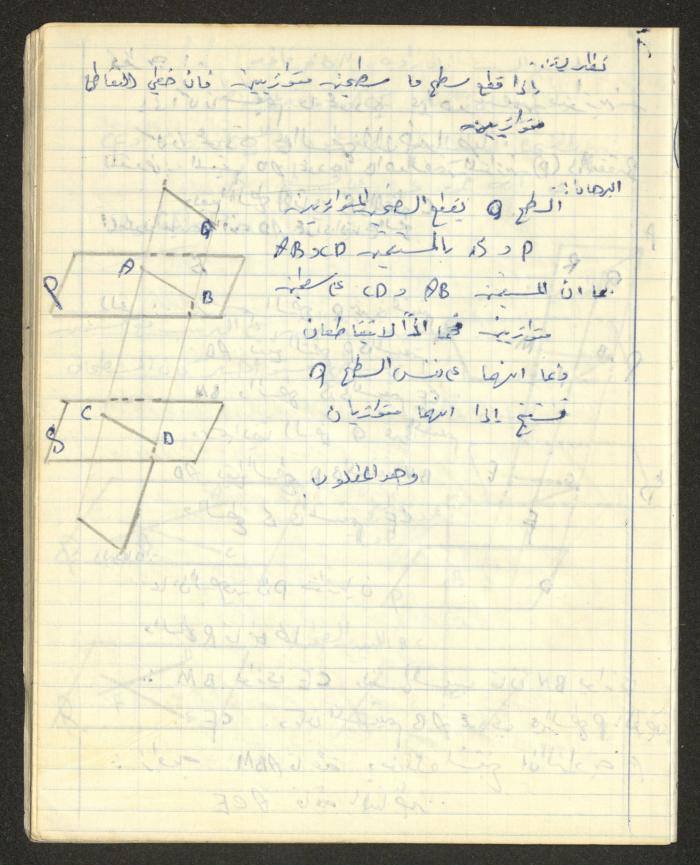 نظرية:
إذا قطع سطح ما سطحين متوازيين فان خطي التقاطع
متوازيين
البرهان:
السطح Q يقطع السطحين المتوازيين
P و S بالمستقيمين AB و CD
بما ان المستقيمين AB و CD على سطحين
متوازيين فهما اذاً لا يتقاطعان
وبما انهما على نفس السطح Q
فنستنتج إذا انهما متوازيان
وهو المطلوب.
Q
A
B
P
C
D
S